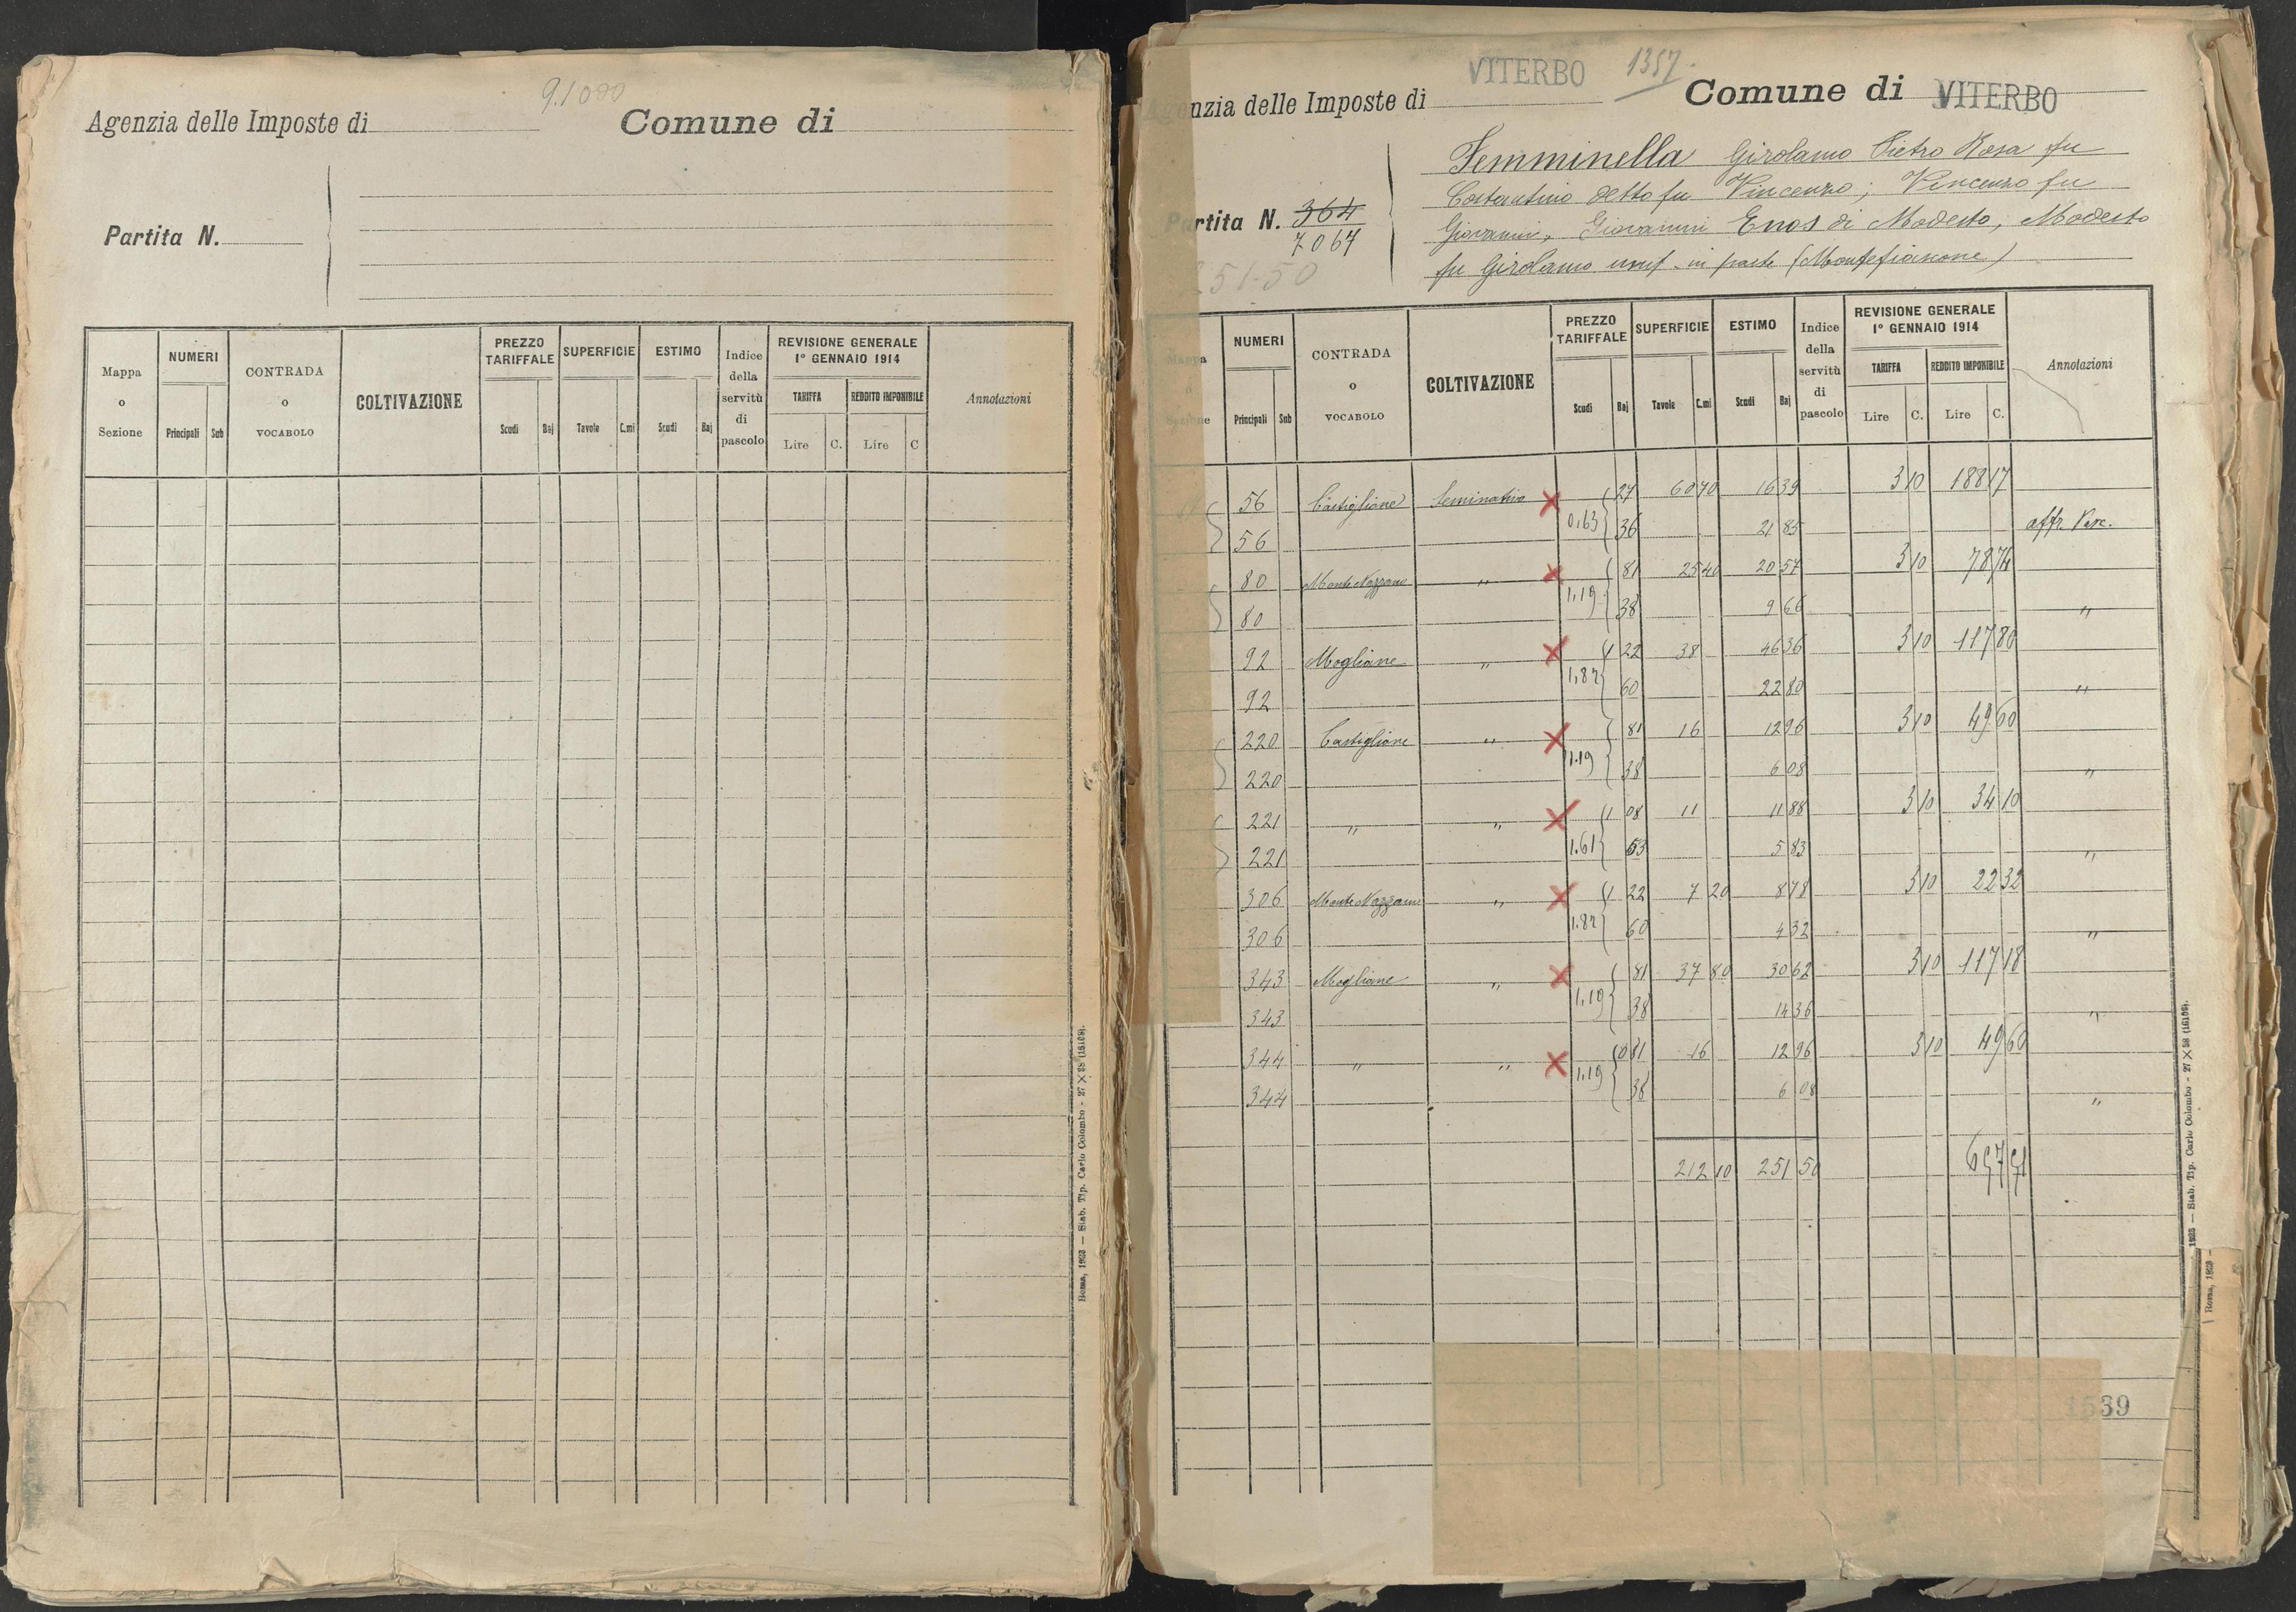 9.1000
Agenzia delle Imposte di
Comune di
Partita N.
Mappa o Sezione
NUMERI
Principali Sub
CONTRADA o VOCABOLO
COLTIVAZIONE
PREZZO TARIFFALE
Scudi Baj
SUPERFICIE
Tavole C.mi
ESTIMO
Scudi Baj
Indice della servitù di pascolo
REVISIONE GENERALE
1° GENNAIO 1914
TARIFFA REDDITO IMPONIBILE
Lire C. Lire C
Annotazioni
Roma, 1923 — Stab. Tip. Carlo Colombo - 27 X 38 (16109).
VITERBO 1357.
Agenzia delle Imposte di
Comune di VITERBO
Partita N. 364
7067
251-50
Femminella Girolamo Pietro Rosa fu
Costantino detto fu Vincenzo; Vincenzo fu
Giovanni, Giovanni Enos di Modesto, Modesto
fu Girolamo usuf. in parte (Montefiascone)
Mappa o Sezione
NUMERI
Principali Sub
CONTRADA o VOCABOLO
COLTIVAZIONE
PREZZO TARIFFALE
Scudi Baj
SUPERFICIE
Tavole C.mi
ESTIMO
Scudi Baj
Indice della servitù di pascolo
REVISIONE GENERALE
1° GENNAIO 1914
TARIFFA REDDITO IMPONIBILE
Lire C. Lire C.
Annotazioni
56 Castiglione Seminativo 27 60 70 16 39 3 10 188 17
56 0,63 36 21 85 affr. Perc.
80 Monte Nazzano " 81 25 40 20 57 3 10 78 74
80 1.19 38 9 66 "
92 Mogliane " 1 22 38 46 36 3 10 117 80
92 1,82 60 22 80 "
220 Castiglione " 81 16 12 96 3 10 49 60
220 1.19 38 6 08 "
221 " " 1 08 11 11 88 3 10 34 10
221 1.61 53 5 83 "
306 Monte Nazzano " 1 22 7 20 8 78 3 10 22 32
306 1.82 60 4 32 "
343 Mogliane " 81 37 80 30 62 3 10 117 18
343 1.19 38 14 36 "
344 " " 0 81 16 12 96 3 10 49 60
344 1.19 38 6 08 "
212 10 251 50 657 51
1539
1923 — Stab. Tip. Carlo Colombo - 27 X 38 (16109).
Roma, 1923 -